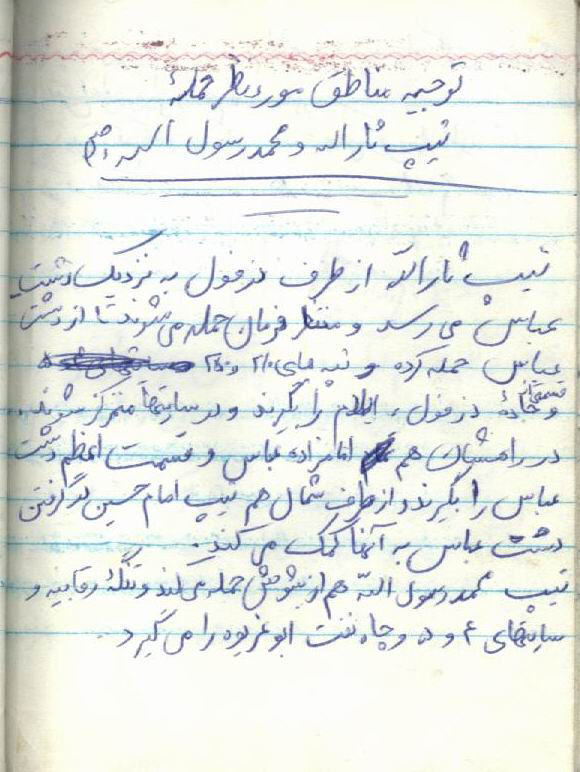 توجیه مناطق مورد نظر حملهٔ
تیپ ثارالله و محمد رسول الله (ص)
تیپ ثارالله از طرف دزفول به نزدیک دشت
عباس می رسد و منتظر فرمان حمله می شوند تا از دشت
عباس حمله کرده و تپه های ۲۱۰ و
و جادهٔ دزفول ، ایلام را بگیرند و در سایتها متمرکز شوند.
قسمتی از
در راهشان هم امامزاده عباس و قسمت اعظم دشت
عباس را بگیرند و از طرف شمال هم تیپ امام حسین در گرفتن
دشت عباس به آنها کمک می کند .
تیپ محمد رسول الله هم از شوش حمله می کند و تنگهٔ رقابیه و
سایتهای ۴ و ۵ و چاه نفت ابوغریوه را می گیرد .